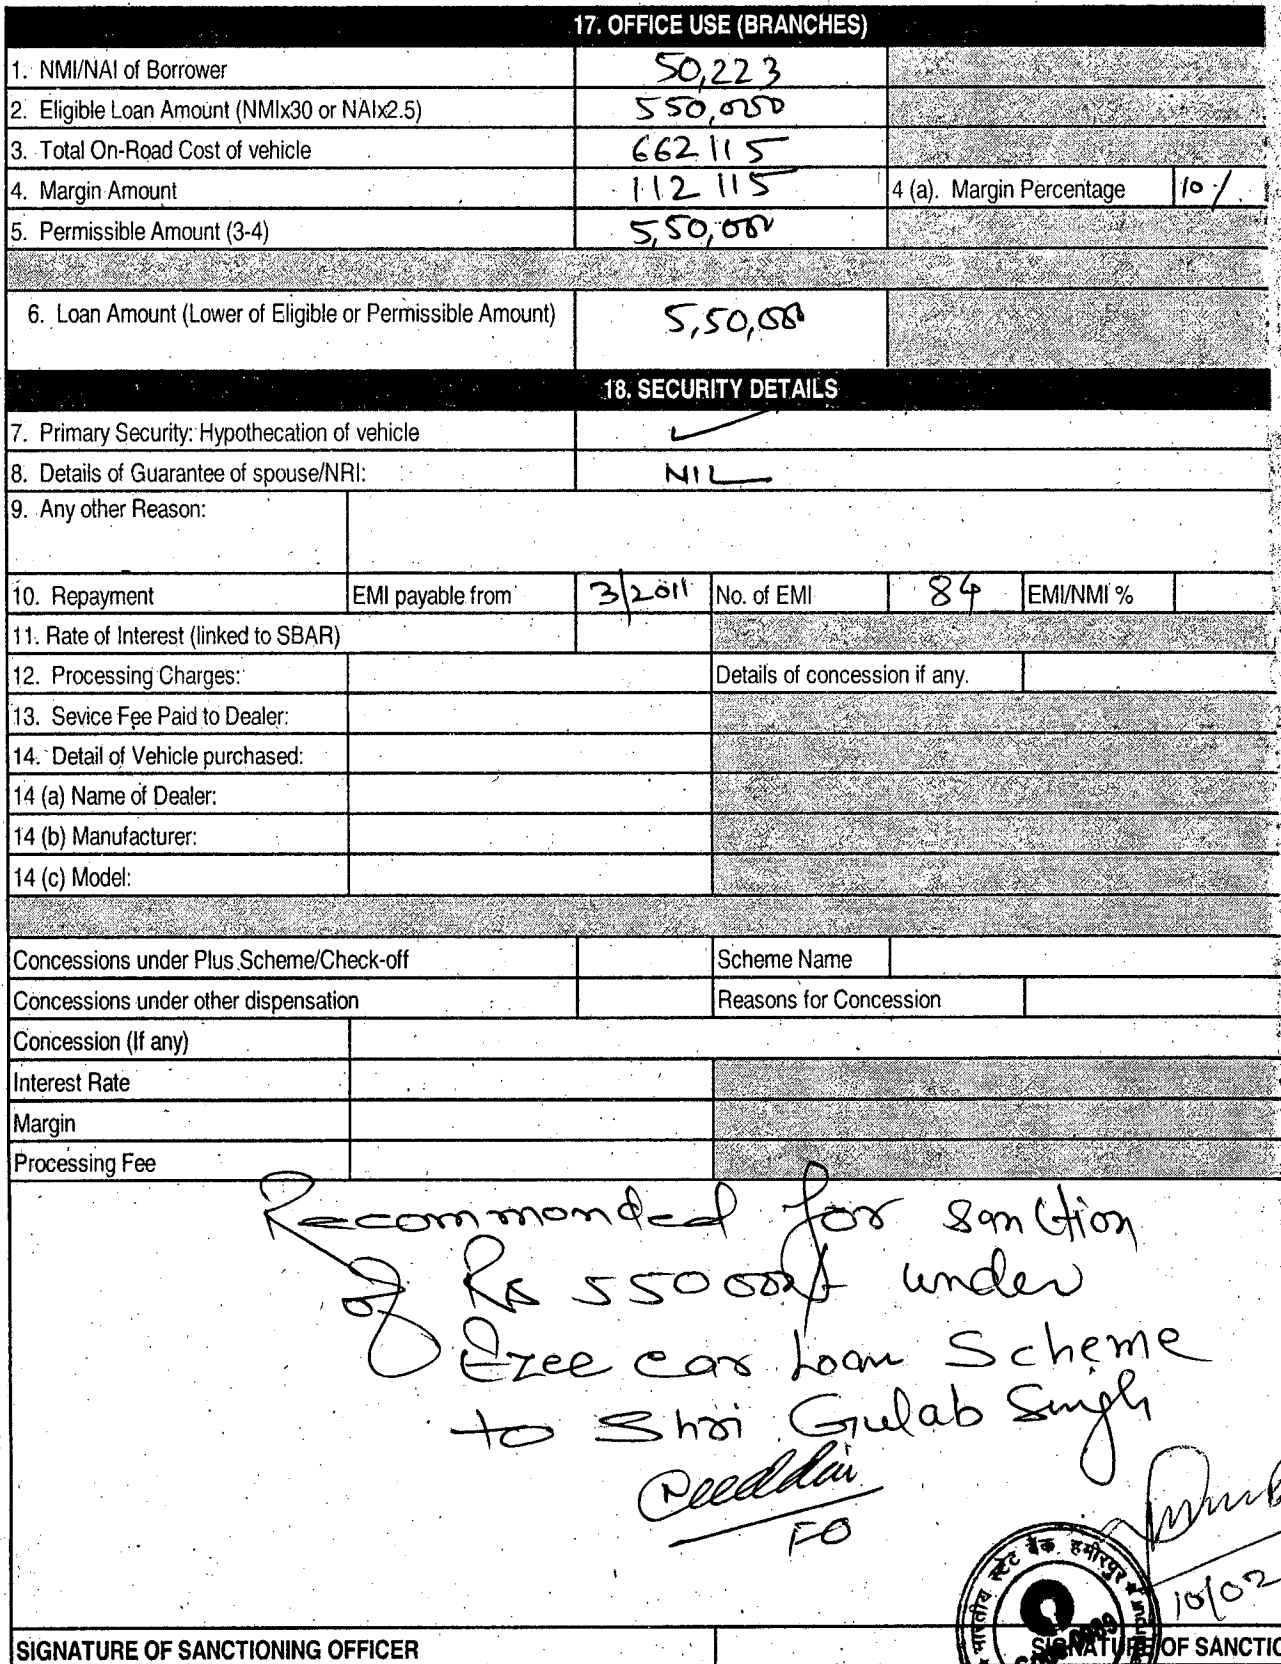 17. OFFICE USE (BRANCHES)
1. NMI/NAI of Borrower 50,223
2. Eligible Loan Amount (NMIx30 or NAIx2.5) 550,000
3. Total On-Road Cost of vehicle 662115
4. Margin Amount 112115 4 (a). Margin Percentage 10%
5. Permissible Amount (3-4) 5,50,000
6. Loan Amount (Lower of Eligible or Permissible Amount) 5,50,000
18. SECURITY DETAILS
7. Primary Security: Hypothecation of vehicle ✓
8. Details of Guarantee of spouse/NRI: NIL
9. Any other Reason:
10. Repayment EMI payable from 3/2011 No. of EMI 84 EMI/NMI %
11. Rate of Interest (linked to SBAR)
12. Processing Charges: Details of concession if any.
13. Sevice Fee Paid to Dealer:
14. Detail of Vehicle purchased:
14 (a) Name of Dealer:
14 (b) Manufacturer:
14 (c) Model:
Concessions under Plus Scheme/Check-off Scheme Name
Concessions under other dispensation Reasons for Concession
Concession (If any)
Interest Rate
Margin
Processing Fee
Recommonded for sanction
of Rs 550000/- under
Ezee car Loan Scheme
to Shri Gulab Singh
FO
10/02
भारतीय स्टेट बैंक हमीरपुर
SIGNATURE OF SANCTIONING OFFICER SIGNATURE OF SANCTIO